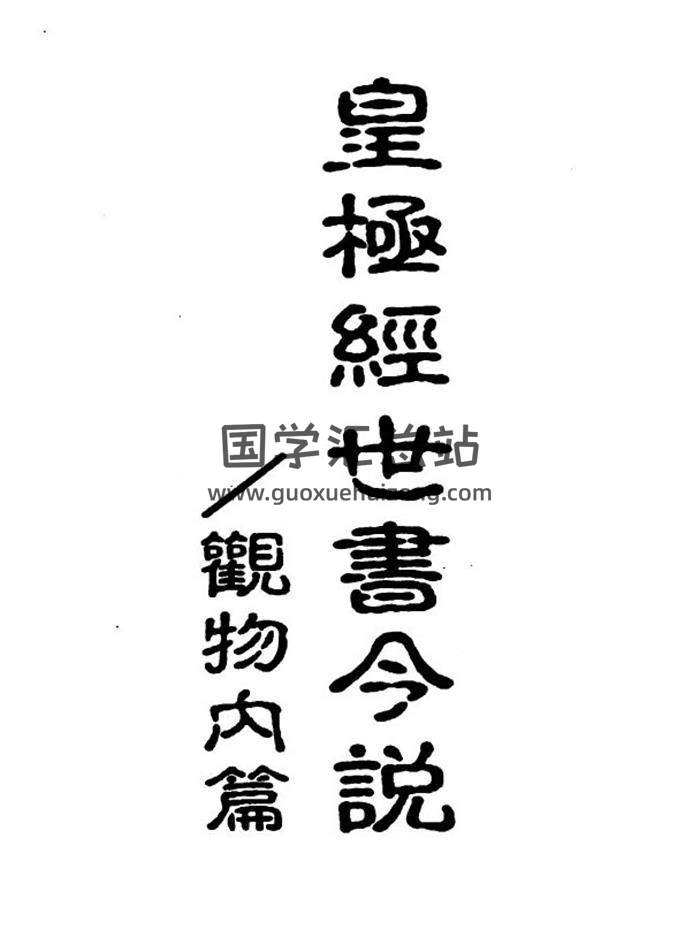 皇極經世書今説
／觀物内篇
国学汇总站
www.guoxuehuizong.com